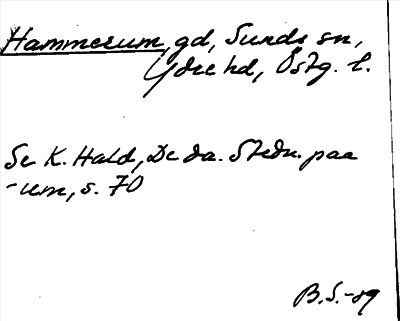 Hammerum, gd, Sunds sn,
Ydre hd, Östg. l.
Se K. Hald, De da. Stedn. paa
-um, s. 70
B.S.-89